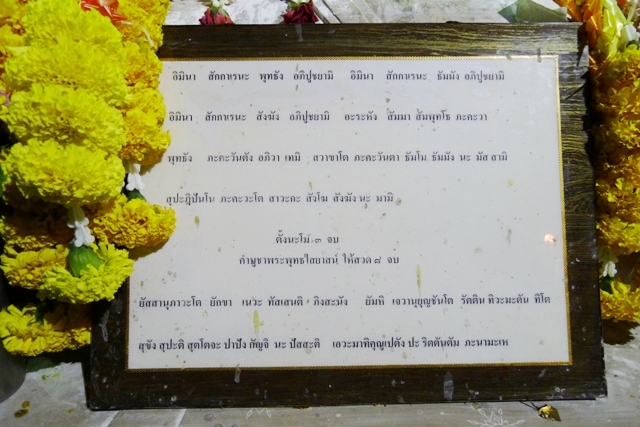 อิมินา สักกาเรนะ พุทธัง อภิปูชยามิ อิมินา สักกาเรนะ ธัมมัง อภิปูชยามิ
อิมินา สักกาเรนะ สังฆัง อภิปูชยามิ อะระหัง สัมมา สัมพุทโธ ภะคะวา
พุทธัง ภะคะวันตัง อภิวา เทมิ สวาขาโต ภะคะวันตา ธัมโม ธัมมัง นะ มัส สามิ
สุปะฏิปันโน ภะคะวะโต สาวะกะ สังโฆ สังฆัง นะ มามิ
ตั้งนะโม ๓ จบ
คำบูชาพระพุทธไสยาสน์ ให้สวด ๘ จบ
ยัสสานุภาวะโต ยักขา เนวะ ทัสเสนติ ภิงสะนัง ยัมหิ เจวานุยุญชันโต รัตติน ทิวะมะตัน ทิโต
สุขัง สุปะติ สุตโตจะ ปาปัง กัญจิ นะ ปัสสะติ เอวะมาทิคุญเปตัง ปะ ริตตันตัม ภะนามะเห